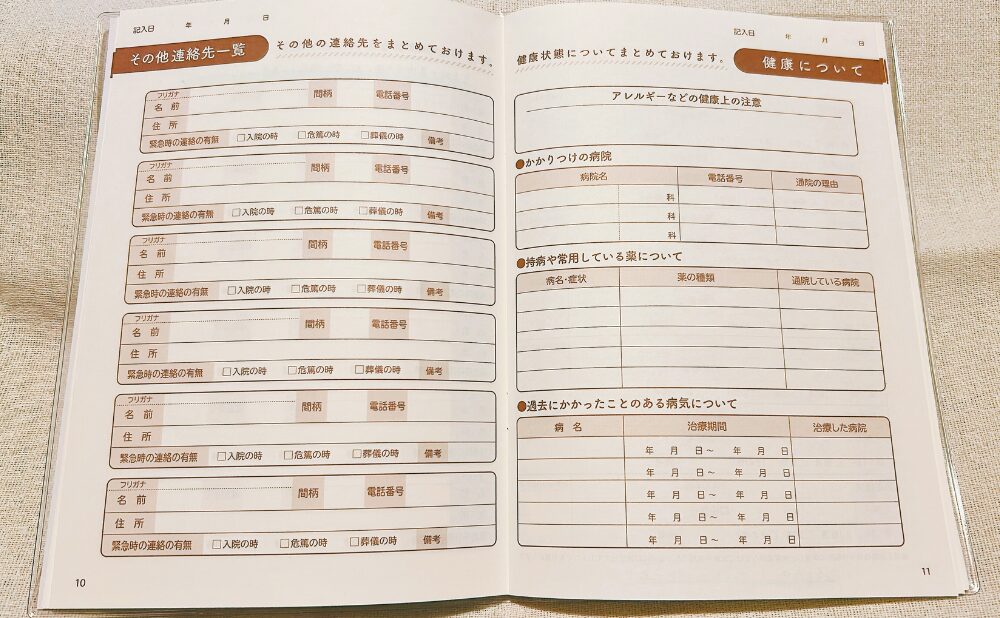 記入日 年 月 日
その他連絡先一覧 その他の連絡先をまとめておけます。
フリガナ
名 前 間柄 電話番号
住 所
緊急時の連絡の有無 □入院の時 □危篤の時 □葬儀の時 備考
フリガナ
名 前 間柄 電話番号
住 所
緊急時の連絡の有無 □入院の時 □危篤の時 □葬儀の時 備考
フリガナ
名 前 間柄 電話番号
住 所
緊急時の連絡の有無 □入院の時 □危篤の時 □葬儀の時 備考
フリガナ
名 前 間柄 電話番号
住 所
緊急時の連絡の有無 □入院の時 □危篤の時 □葬儀の時 備考
フリガナ
名 前 間柄 電話番号
住 所
緊急時の連絡の有無 □入院の時 □危篤の時 □葬儀の時 備考
フリガナ
名 前 間柄 電話番号
住 所
緊急時の連絡の有無 □入院の時 □危篤の時 □葬儀の時 備考
10
記入日 年 月 日
健康状態についてまとめておけます。 健康について
アレルギーなどの健康上の注意
●かかりつけの病院
病院名 電話番号 通院の理由
科
科
科
●持病や常用している薬について
病名・症状 薬の種類 通院している病院
●過去にかかったことのある病気について
病 名 治療期間 治療した病院
年 月 日〜 年 月 日
年 月 日〜 年 月 日
年 月 日〜 年 月 日
年 月 日〜 年 月 日
年 月 日〜 年 月 日
11